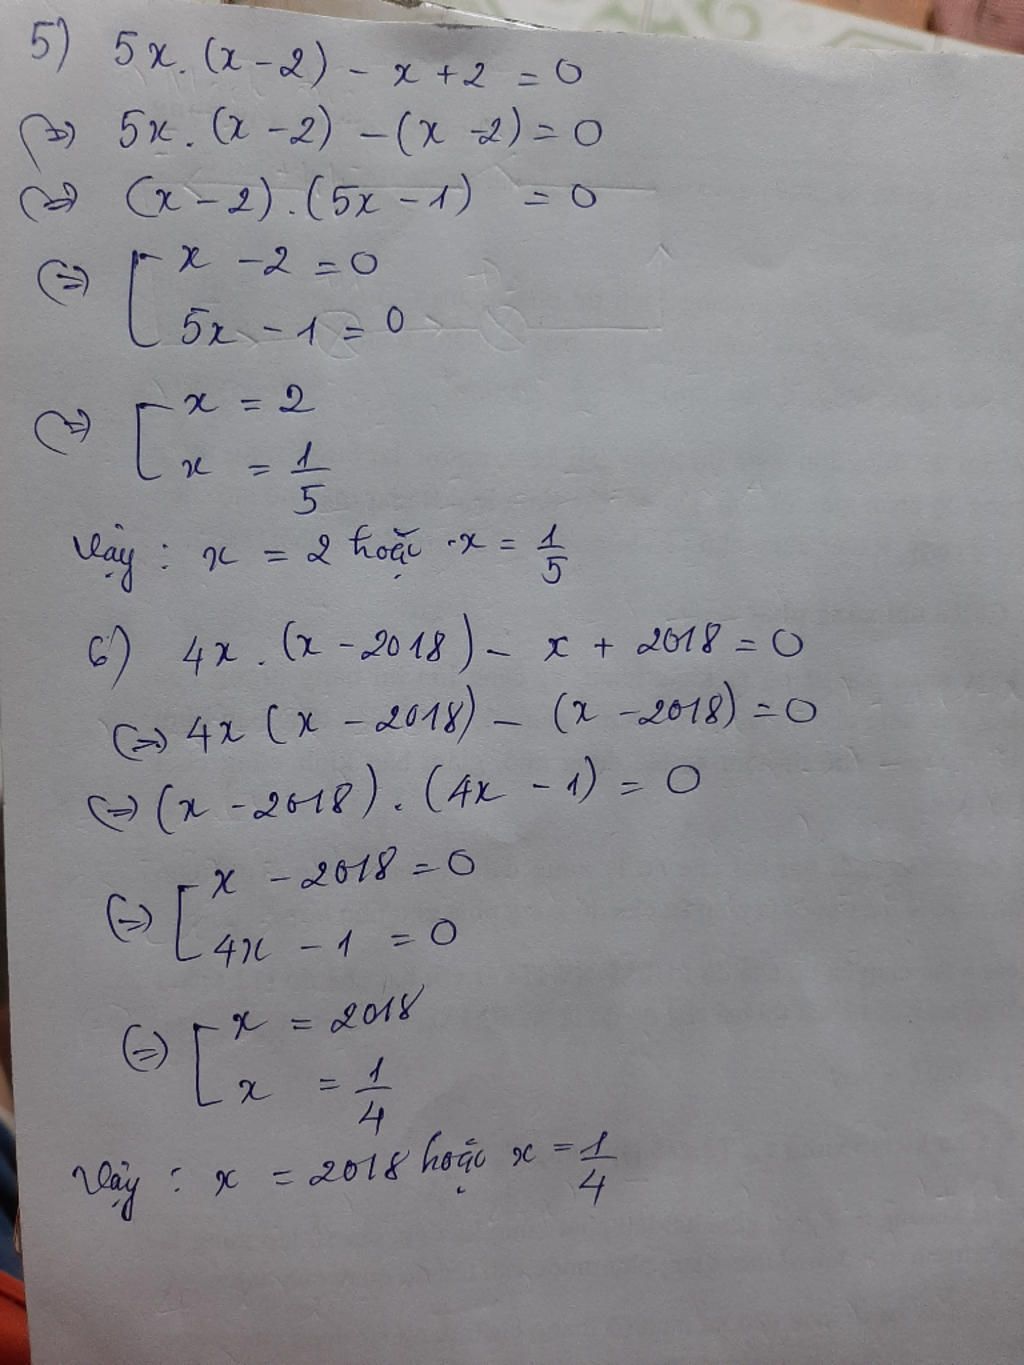 5) 5x.(x-2) - x + 2 = 0
(=) 5x.(x-2) - (x-2) = 0
(=) (x-2).(5x-1) = 0
(=) [ x - 2 = 0
5x - 1 = 0
(=) [ x = 2
x = 1/5
Vậy : x = 2 hoặc x = 1/5
6) 4x.(x-2018) - x + 2018 = 0
(=) 4x(x-2018) - (x-2018) = 0
(=) (x-2018).(4x-1) = 0
(=) [ x - 2018 = 0
4x - 1 = 0
(=) [ x = 2018
x = 1/4
Vậy : x = 2018 hoặc x = 1/4